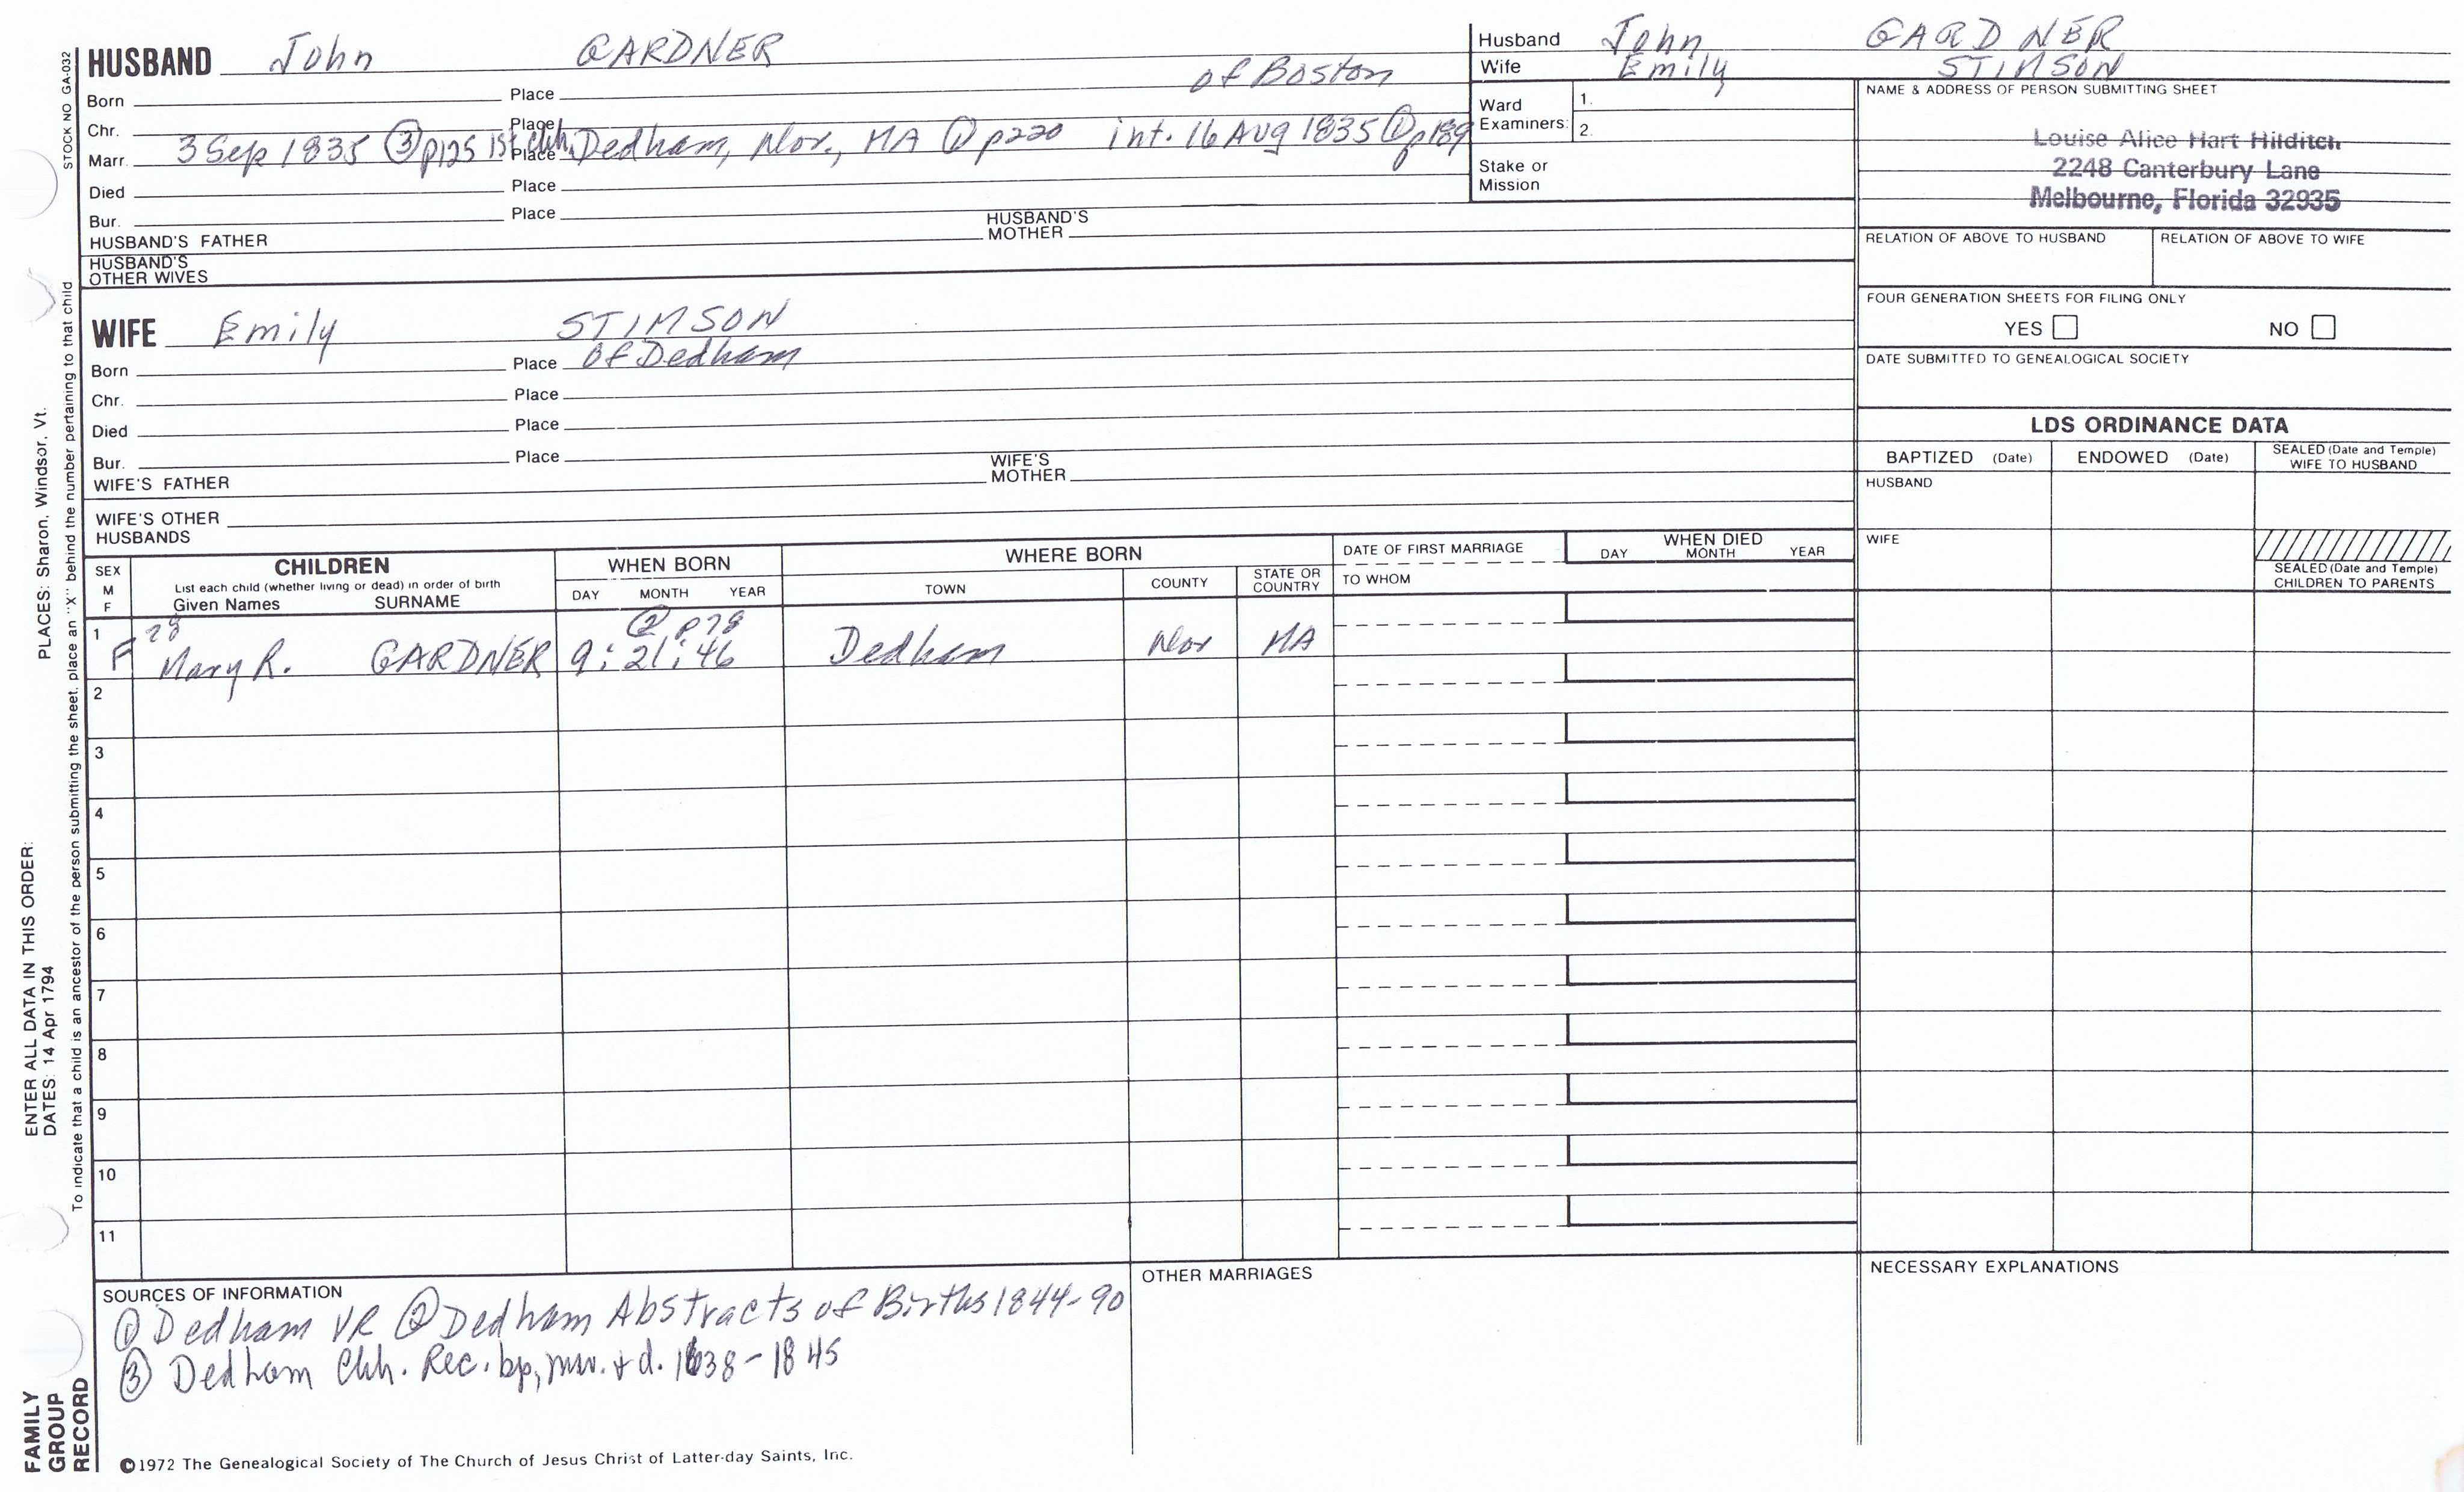 HUSBAND John GARDNER of Boston
Born Place
Chr. Place
Marr. 3 Sep 1835 ③ p125 1st Chh. Place Dedham, Nor., MA ① p220 int. 16 Aug 1835 ① p189
Died Place
Bur. Place
HUSBAND'S FATHER HUSBAND'S MOTHER
HUSBAND'S OTHER WIVES
WIFE Emily STIMSON
Born Place of Dedham
Chr. Place
Died Place
Bur. Place
WIFE'S FATHER WIFE'S MOTHER
WIFE'S OTHER HUSBANDS
Husband John GARDNER
Wife Emily STIMSON
Ward Examiners: 1.
2.
Stake or Mission
NAME & ADDRESS OF PERSON SUBMITTING SHEET
Louise Alice Hart Hilditch
2248 Canterbury Lane
Melbourne, Florida 32935
RELATION OF ABOVE TO HUSBAND RELATION OF ABOVE TO WIFE
FOUR GENERATION SHEETS FOR FILING ONLY
YES NO
DATE SUBMITTED TO GENEALOGICAL SOCIETY
LDS ORDINANCE DATA
BAPTIZED (Date) ENDOWED (Date) SEALED (Date and Temple) WIFE TO HUSBAND
HUSBAND
WIFE
SEALED (Date and Temple) CHILDREN TO PARENTS
SEX M F
CHILDREN
List each child (whether living or dead) in order of birth
Given Names SURNAME
WHEN BORN
DAY MONTH YEAR
WHERE BORN
TOWN COUNTY STATE OR COUNTRY
DATE OF FIRST MARRIAGE
TO WHOM
WHEN DIED
DAY MONTH YEAR
28 ② p78
1 F Mary R. GARDNER 9:21:46 Dedham Nor MA
2
3
4
5
6
7
8
9
10
11
SOURCES OF INFORMATION
① Dedham VR ② Dedham Abstracts of Births 1844-90
③ Dedham Chh. Rec. bp, mar. + d. 1638-1845
OTHER MARRIAGES
NECESSARY EXPLANATIONS
©1972 The Genealogical Society of The Church of Jesus Christ of Latter-day Saints, Inc.
STOCK NO GA-032
To indicate that a child is an ancestor of the person submitting the sheet, place an "X" behind the number pertaining to that child
PLACES: Sharon, Windsor, Vt.
ENTER ALL DATA IN THIS ORDER:
DATES: 14 Apr 1794
FAMILY
GROUP
RECORD